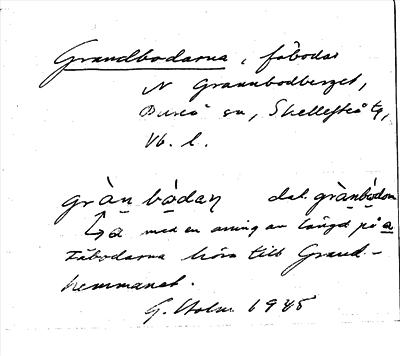 Grandbodarna, fäbodar
N Grannbodberget,
Bureå sn, Skellefteå tg,
Vb. l.
gràn bòdaṇ dat. grànbòdom
↳ a med en aning av längd på a
Fäbodarna höra till Grand-
hemmanet.
G. Holm 1945